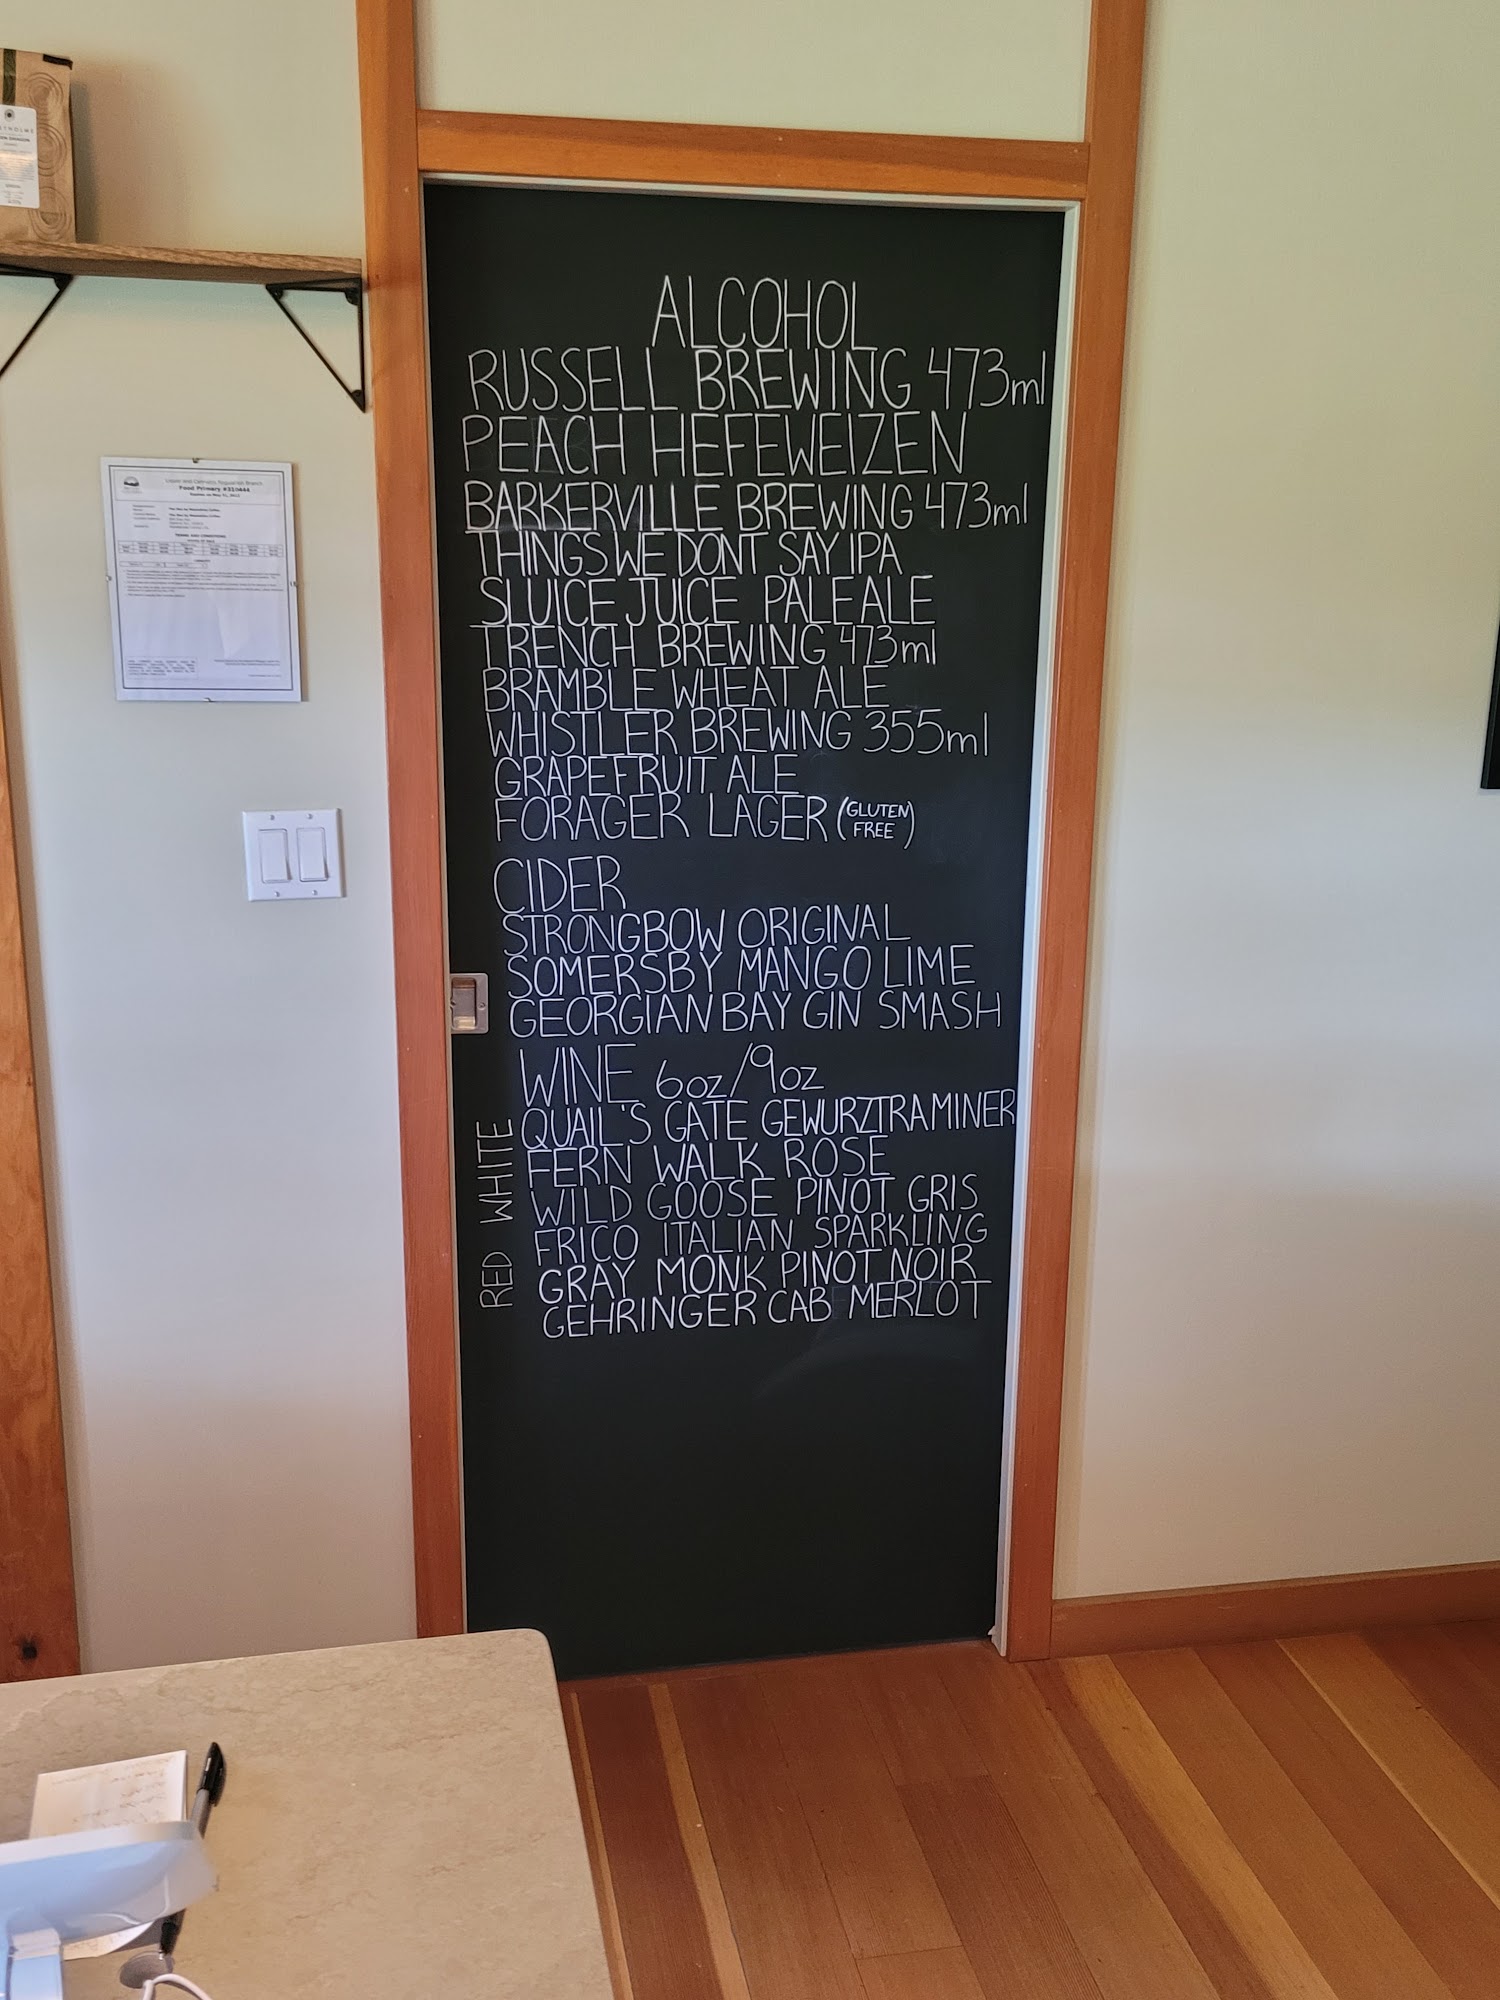 ALCOHOL
RUSSELL BREWING 473ml
PEACH HEFEWEIZEN
BARKERVILLE BREWING 473ml
THINGS WE DONT SAY IPA
SLUICE JUICE PALE ALE
TRENCH BREWING 473ml
BRAMBLE WHEAT ALE
WHISTLER BREWING 355ml
GRAPEFRUIT ALE
FORAGER LAGER (GLUTEN FREE)
CIDER
STRONGBOW ORIGINAL
SOMERSBY MANGO LIME
GEORGIAN BAY GIN SMASH
WINE 6oz/9oz
WHITE
QUAIL'S GATE GEWURZTRAMINER
FERN WALK ROSE
WILD GOOSE PINOT GRIS
FRICO ITALIAN SPARKLING
RED
GRAY MONK PINOT NOIR
GEHRINGER CAB MERLOT
Liquor and Cannabis Regulation Branch
TERMS AND CONDITIONS